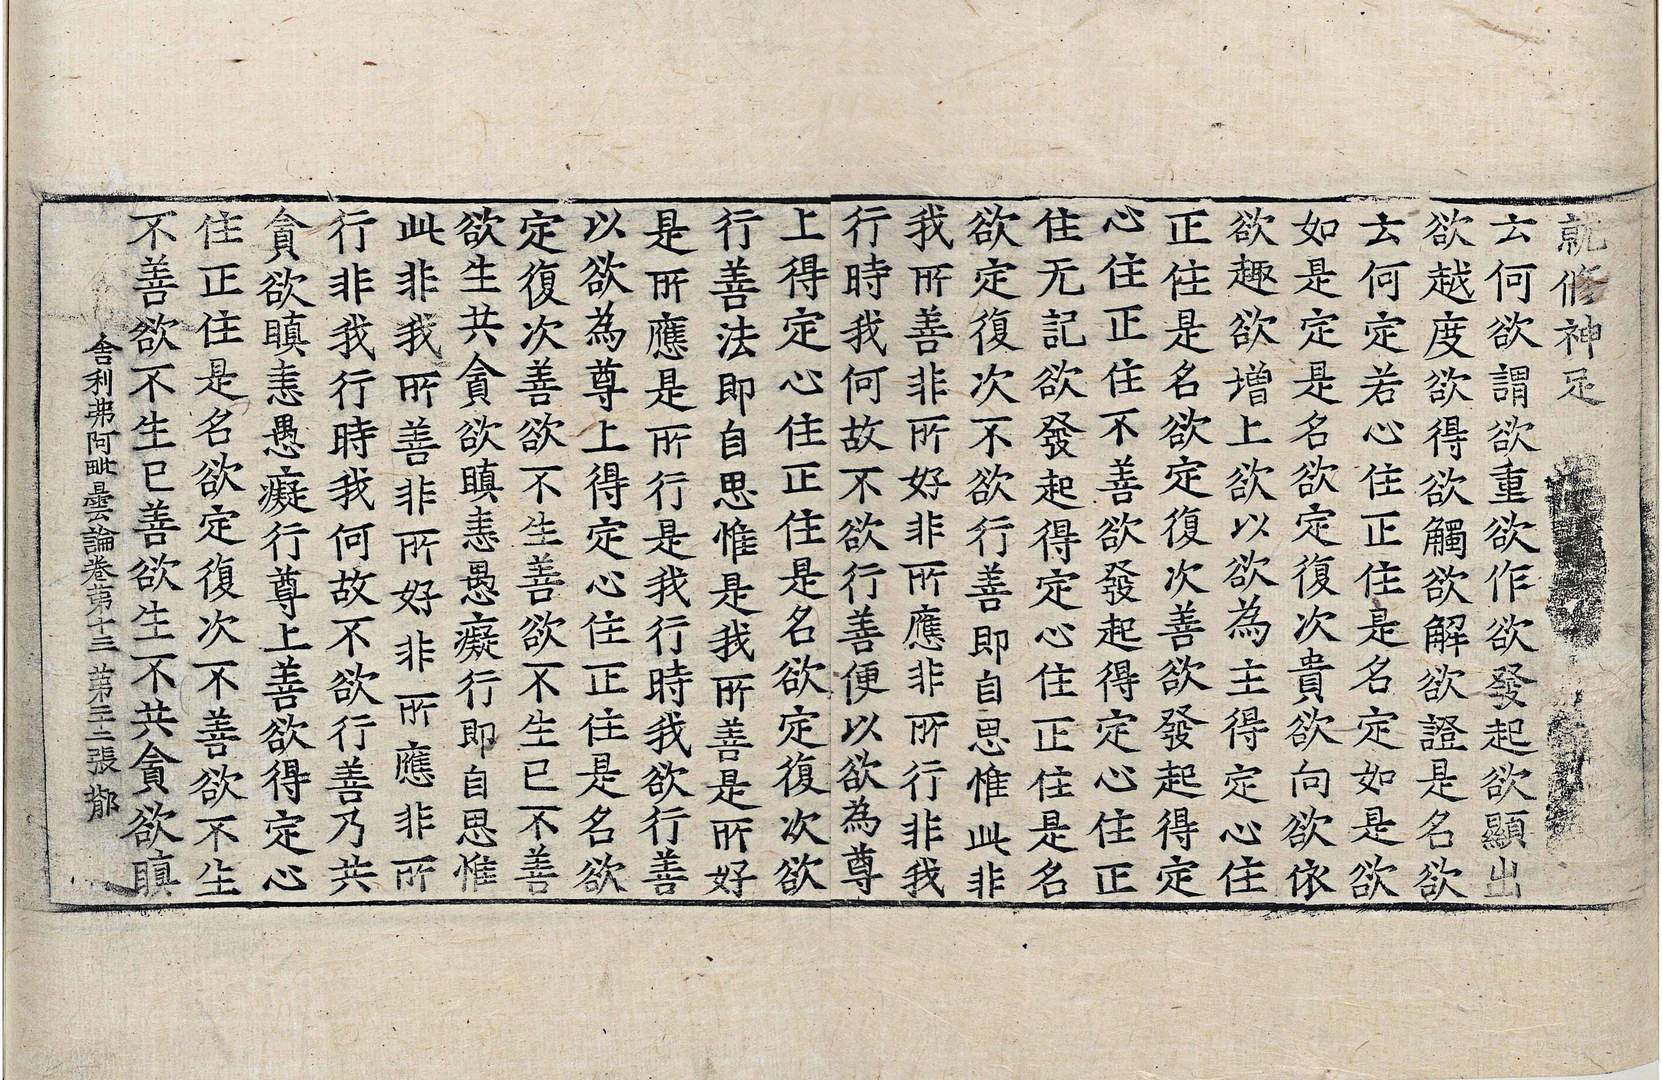 就修神足
云何欲謂欲重欲作欲發起欲顯出
欲越度欲得欲觸欲解欲證是名欲
云何定若心住正住是名定如是欲
如是定是名欲定復次貴欲向欲依
欲趣欲增上欲以欲為主得定心住
正住是名欲定復次善欲發起得定
心住正住不善欲發起得定心住正
住无記欲發起得定心住正住是名
欲定復次不欲行善即自思惟此非
我所善非所好非所應非所行非我
行時我何故不欲行善便以欲為尊
上得定心住正住是名欲定復次欲
行善法即自思惟是我所善是所好
是所應是所行是我行時我欲行善
以欲為尊上得定心住正住是名欲
定復次善欲不生善欲不生已不善
欲生共貪欲瞋恚愚癡行即自思惟
此非我所善非所好非所應非所
行非我行時我何故不欲行善乃共
貪欲瞋恚愚癡行尊上善欲得定心
住正住是名欲定復次不善欲不生
不善欲不生已善欲生不共貪欲瞋
舍利弗阿毗曇論卷第十三 第三十二張 鄯